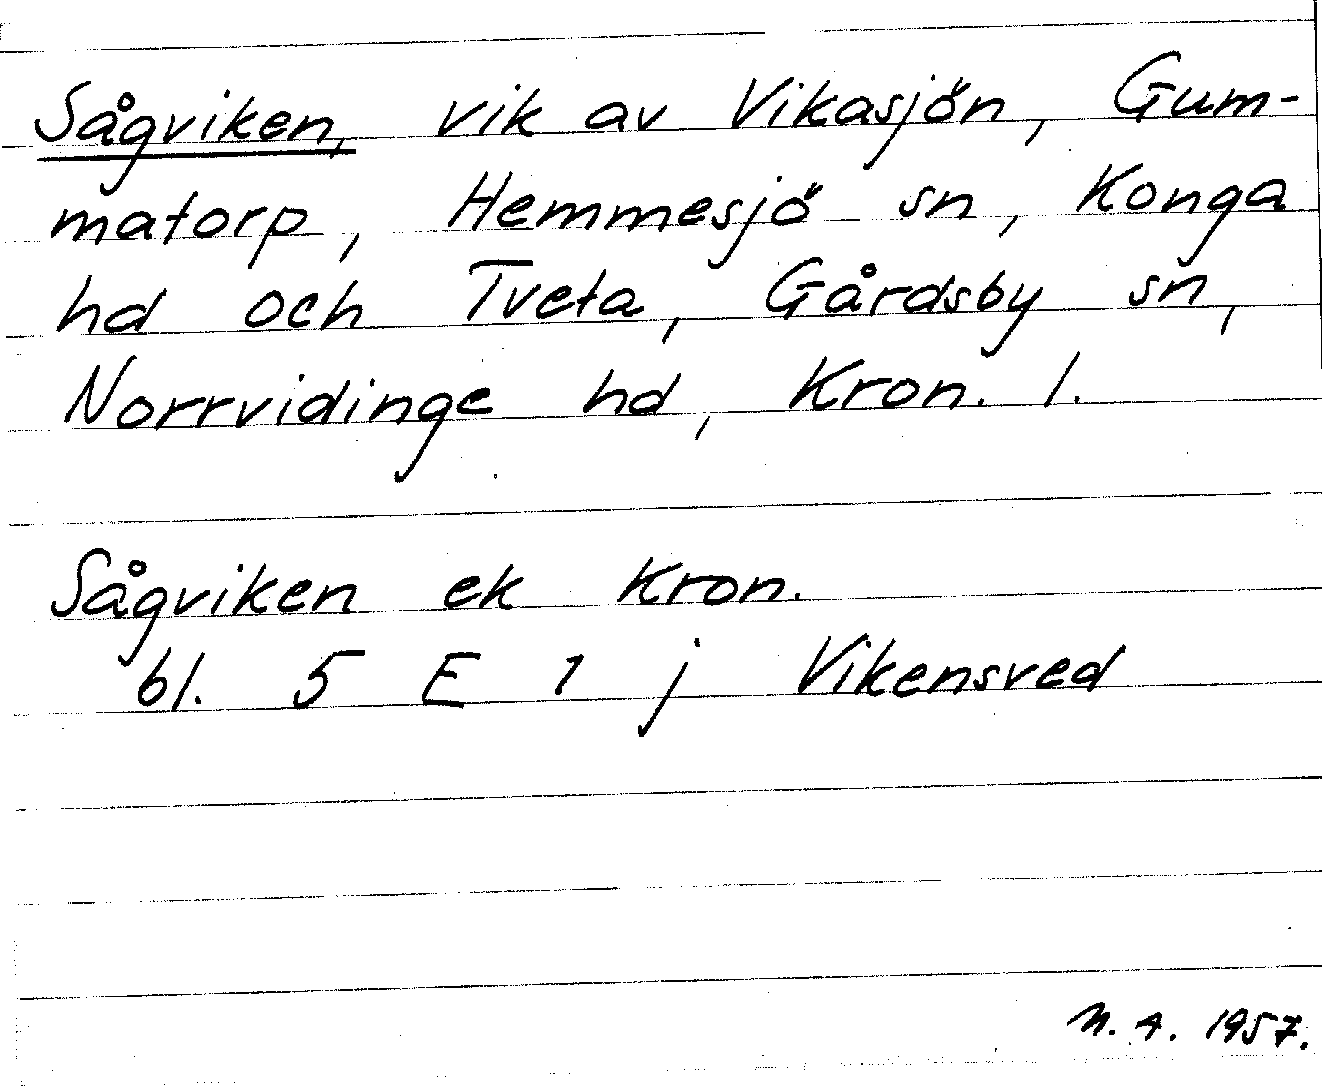 Sågviken, vik av Vikasjön, Gum-
matorp, Hemmesjö sn, Konga
hd och Tveta, Gårdsby sn,
Norrvidinge hd, Kron. l.
Sågviken ek Kron.
bl. 5 E 1 j Vikensved
N. A. 1957.